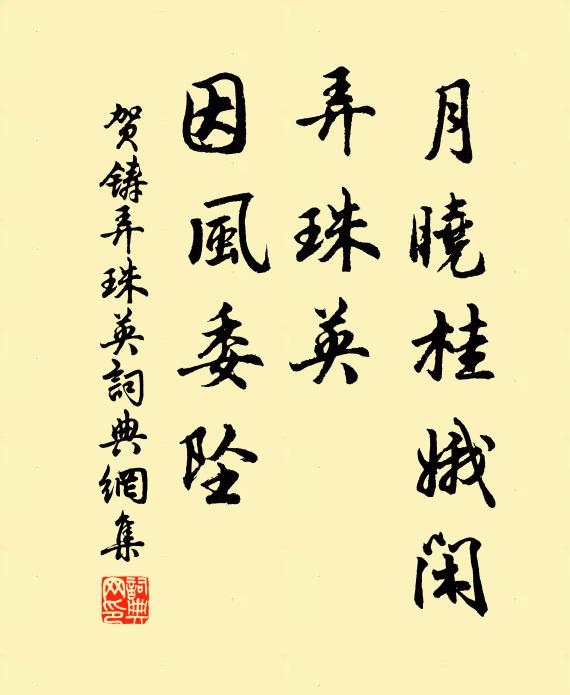 月曉桂娥閑
弄珠英
因風委墜
賀鑄弄珠英詞典網集
詞典网印